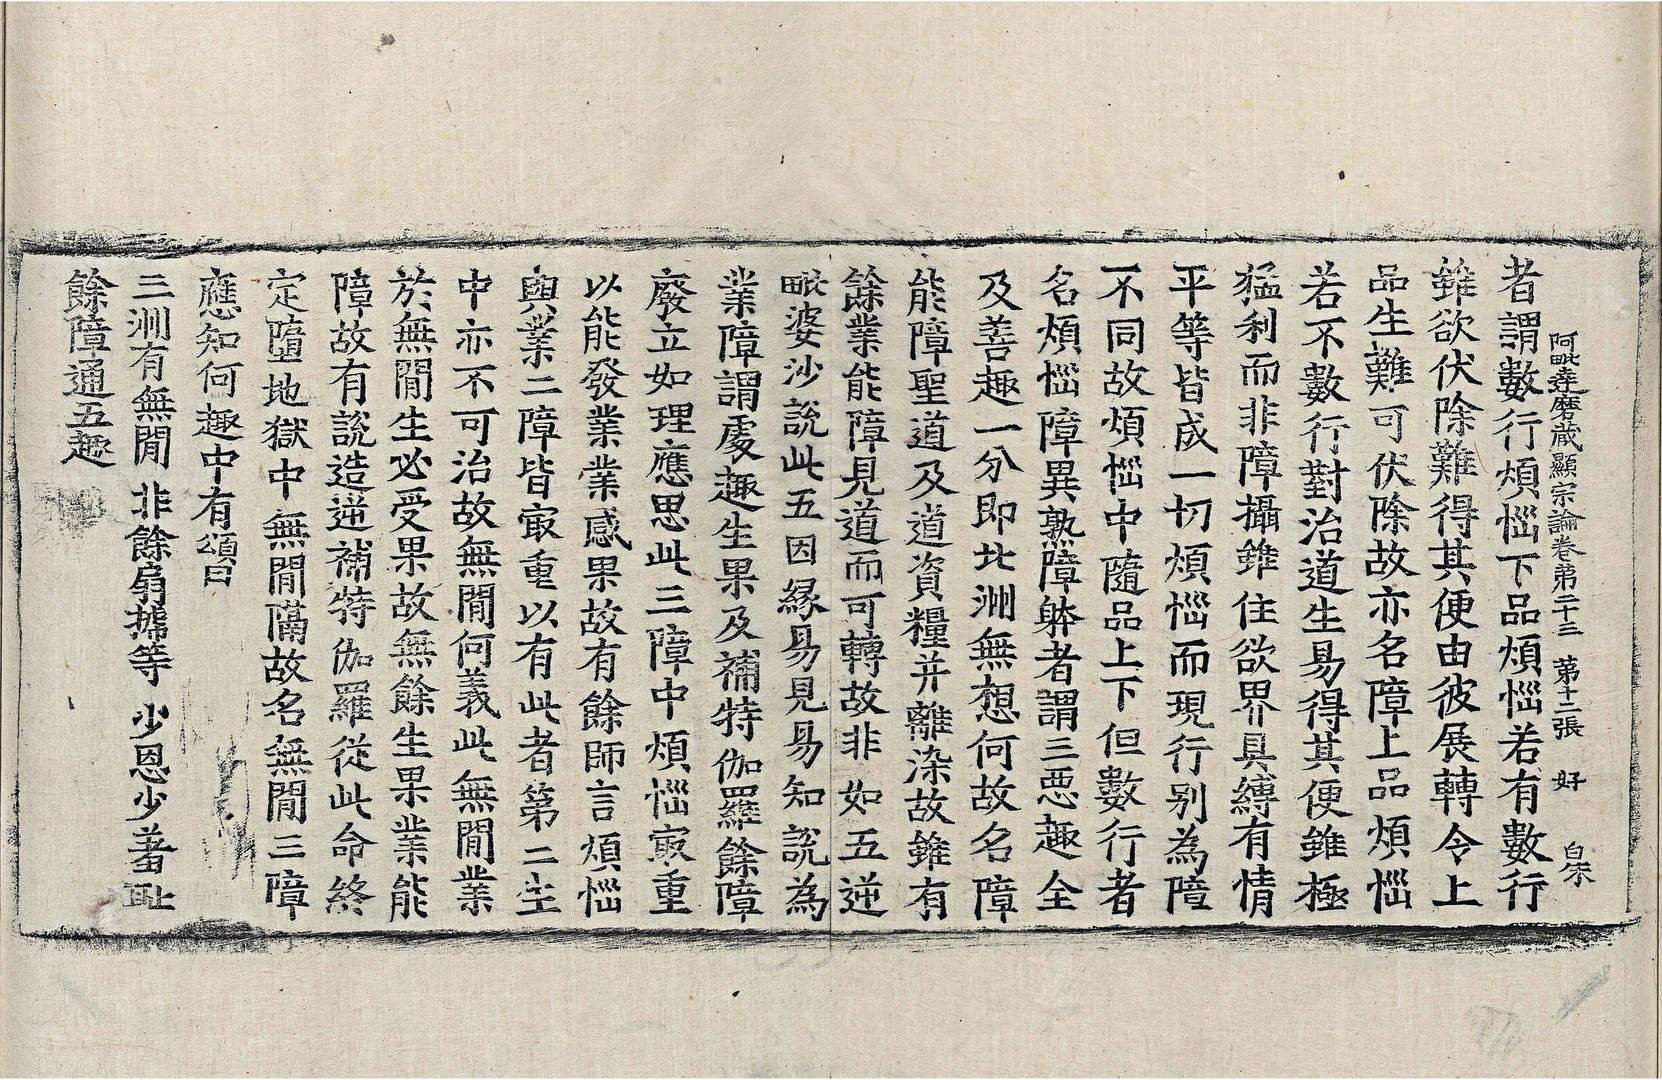 阿毗達磨藏顯宗論卷第二十三 第十二張 好
者謂數行煩惱下品煩惱若有數行
雖欲伏除難得其便由彼展轉令上
品生難可伏除故亦名障上品煩惱
若不數行對治道生易得其便雖極
猛利而非障攝雖住欲界具縛有情
平等皆成一切煩惱而現行别為障
不同故煩惱中隨品上下但數行者
名煩惱障異熟障躰者謂三惡趣全
及善趣一分即北洲無想何故名障
能障聖道及道資糧并離染故雖有
餘業能障見道而可轉故非如五逆
毗婆沙說此五因緣易見易知說為
業障謂處趣生果及補特伽羅餘障
廢立如理應思此三障中煩惱㝡重
以能發業業感果故有餘師言煩惱
與業二障皆㝡重以有此者第二生
中亦不可治故無閒何義此無閒業
於無閒生必受果故無餘生果業能
障故有說造逆補特伽羅從此命終
定墮地獄中無閒隔故名無閒三障
應知何趣中有頌曰
三洲有無閒 非餘扇搋等 少恩少羞恥
餘障通五趣